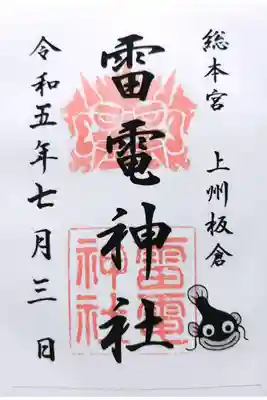 総本宮 上州板倉
雷電神社
令和五年七月三日
雷電
神社